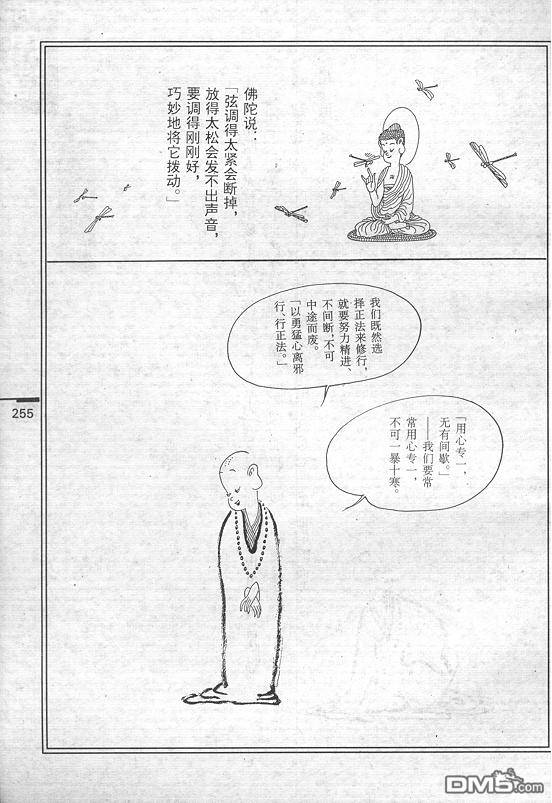 佛陀说：
「弦调得太紧会断掉，
放得太松会发不出声音，
要调得刚刚好，
巧妙地将它拨动。」
我们既然选
择正法来修行，
就要努力精进、
不间断，不可
中途而废。
「以勇猛心离邪
行、行正法。」
「用心专一，
无有间歇。」
——我们要常
常用心专一，
不可一暴十寒。
255
DM5.com